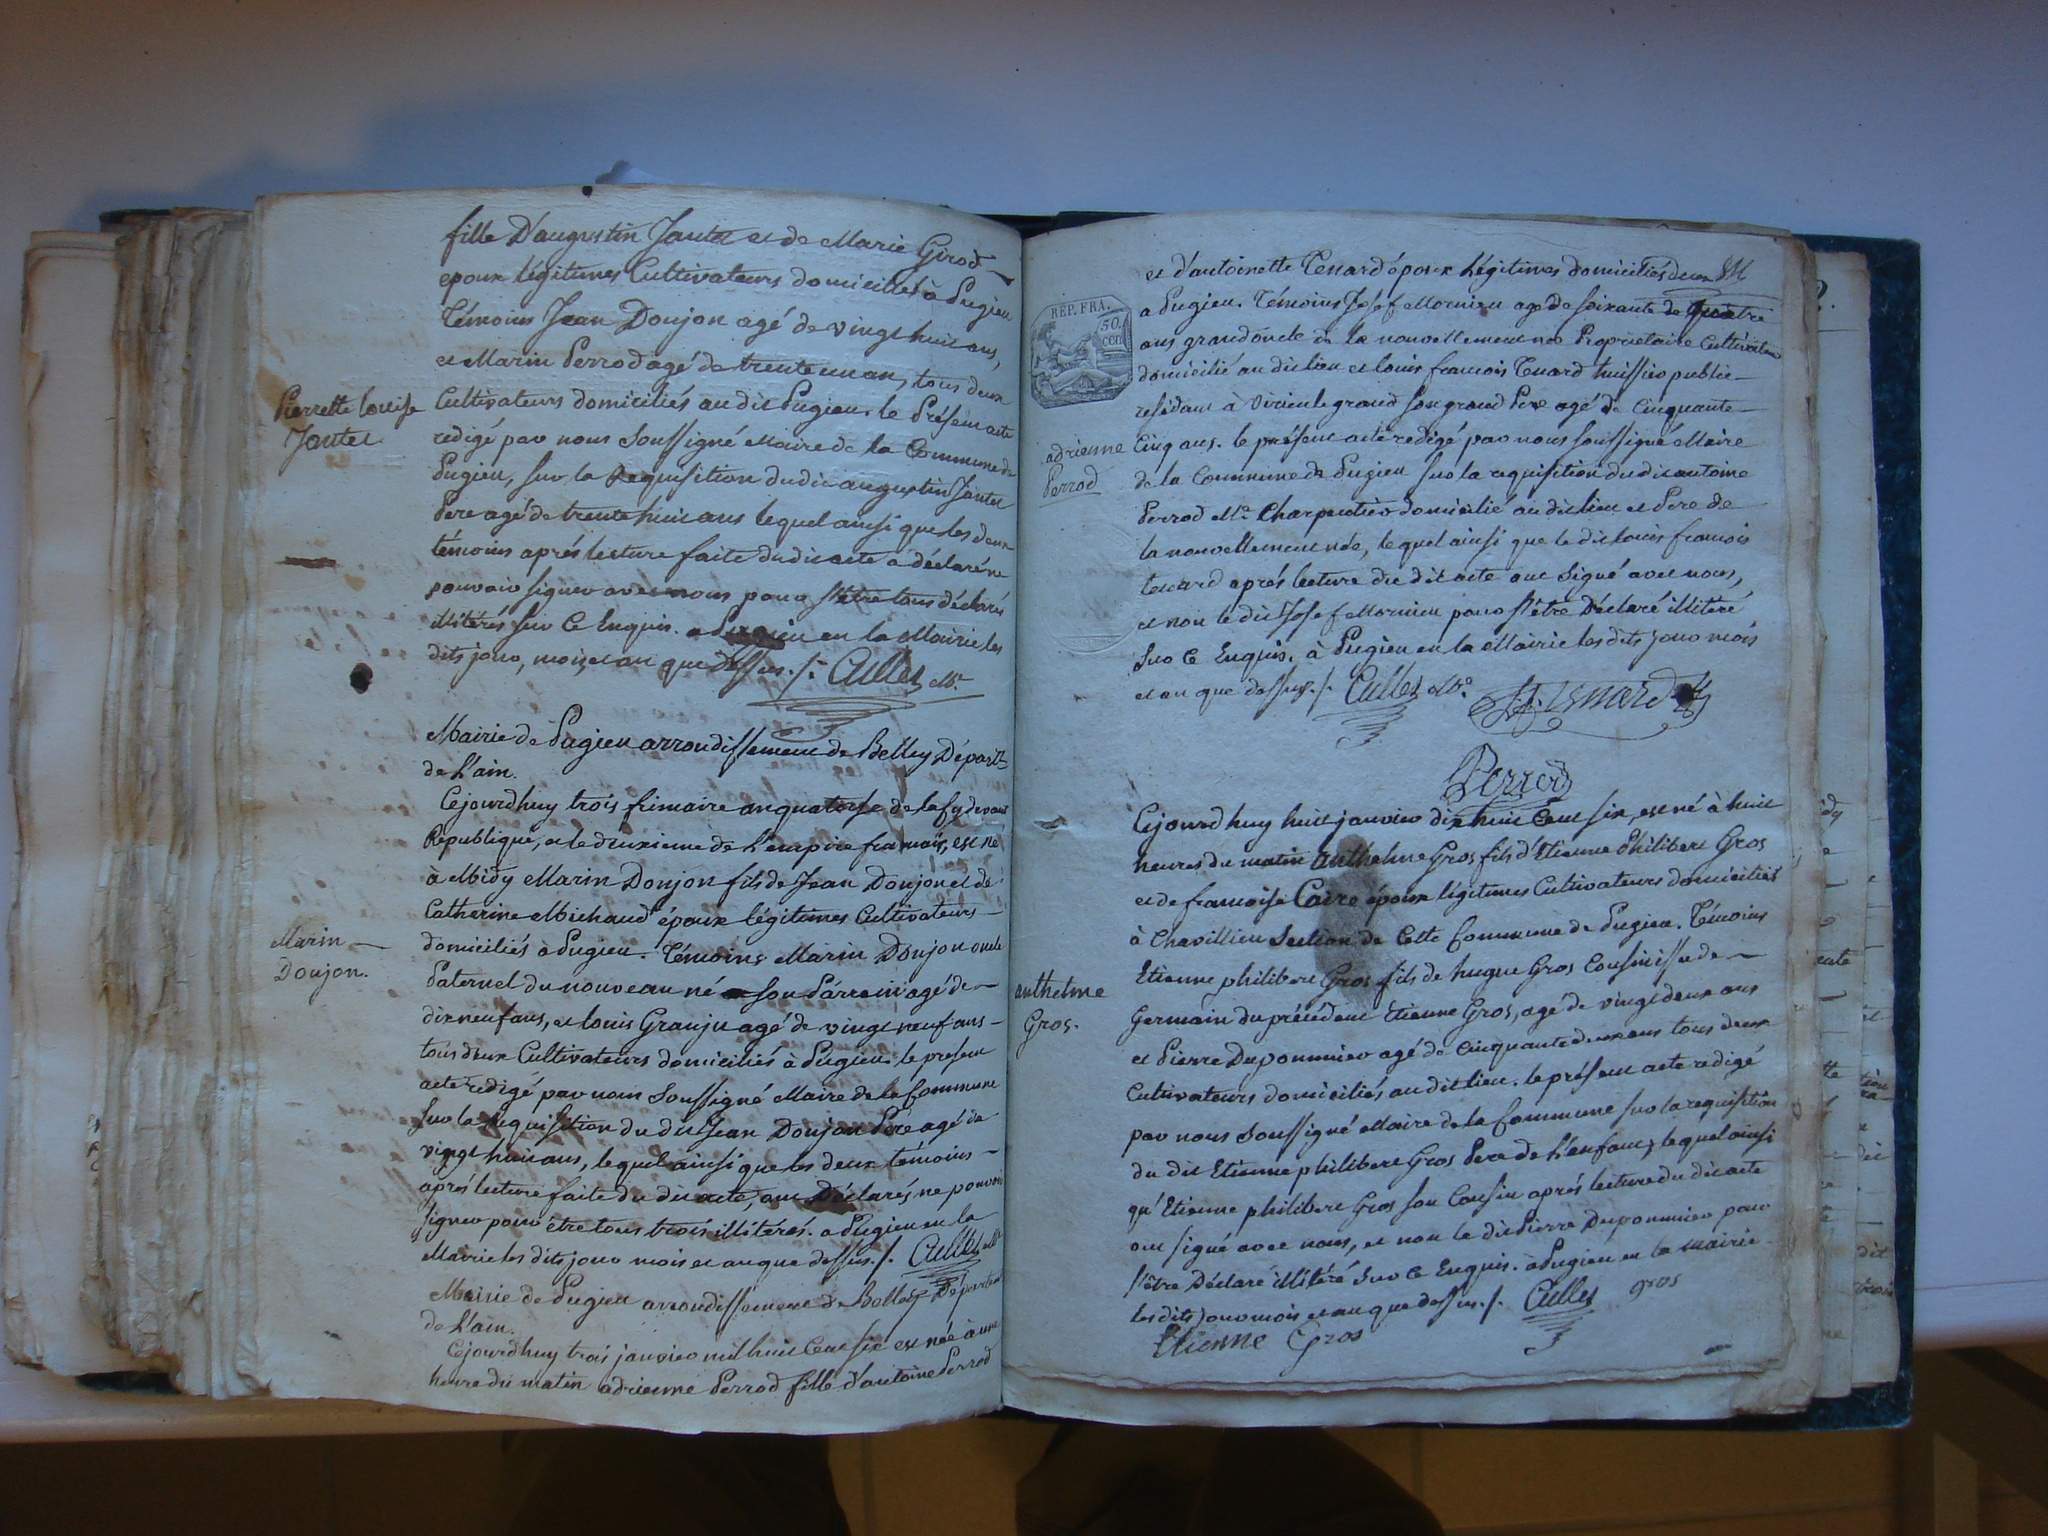 fille D'augustin Jantet et de Marie Girod
epoux légitimes Cultivateurs domiciliés à Pugieu
Témoins Jean Doujon agé de vingt huit ans,
et Marin Perrod agé de trente un an, tous deux
Pierrette louise
Jantet
Cultivateurs domiciliés au dit Pugieu. le Présent acte
redigé par nous Soussigné Maire de la Commune de
Pugieu, sur la Requisition dudit augustin Jantet
Pere agé de trente huit ans lequel ainsi que les deux
témoins aprés lecture faite dudit acte a déclaré ne
pouvoir signer avec nous pour s'être tous déclarés
illitérés sur ce Enquis. a Pugieu en la Mairie les
dits jour, mois, et an que dessus ./. Cullet Mre
Mairie de Pugieu arrondissement de Belley Départt
de L'ain.
Cejourd'huy trois frimaire an quatorse de la cy devant
Republique, et le deuxieme de L'empire francois, est né
à Midy Marin Doujon fils de Jean Doujon et de
Catherine Michaud époux légitimes Cultivateurs
Marin
Doujon.
domiciliés à Pugieu. Témoins Marin Doujon oncle
Paternel du nouveau né son Parrein agé de
dix neuf ans, et louis Granju agé de vingt neuf ans
tous deux Cultivateurs domiciliés à Pugieu. le present
acte redigé par nous Soussigné Maire de la Commune
Sur la Requisition du dit Jean Doujon Pere agé de
vingt huit ans, lequel ainsi que les deux témoins
aprés lecture faite du dit acte, ont Déclarés ne pouvoir
signer pour être tous trois illitérés. a Pugieu en la
Mairie les dits jour mois et an que dessus ./. Cullet Mre
Mairie de Pugieu arrondissement de Belley Département
de L'ain.
Cejourd'huy trois janvier mil huit Cent six est née à une
heure du matin adrienne Perrod fille d'antoine Perrod
et d'antoinette Tenard époux Légitimes domiciliés
a Pugieu. Témoins Josef Mornieu agé de soixante de quatre
REP. FRA.
50.
cen
ans grand oncle de la nouvellement née Proprietaire Cultivateur
domicilié au dit lieu et louis francois Tenard huissier public
residant à Virieu le grand son grand Pere agé de Cinquante
adrienne
Perrod
Cinq ans. le présent acte redigé par nous soussigné Maire
de la Commune de Pugieu sur la requisition dudit antoine
Perrod Me Charpentier domicilié au dit lieu et Pere de
la nouvellement née, lequel ainsi que le dit louis francois
tenard aprés lecture du dit acte ont signé avec nous,
et non le dit Josef Mornieu pour s'être Déclaré illitéré
Sur ce Enquis, à Pugieu en la Mairie les dits jour mois
et an que dessus ./. Cullet Mre
Perrod
Cejourd'huy huit janvier dix huit Cent six, est né à huit
heures du matin anthelme Gros fils d'Etienne Philibert Gros
et de francoise Caire époux légitimes Cultivateurs domiciliés
à Chavillieu Section de Cette Commune de Pugieu. Témoins
anthelme
Gros.
Etienne philibert Gros fils de hugue Gros Cousin issu de
Germain du précédent Etienne Gros, agé de vingt deux ans
et Pierre Duponmier agé de Cinquante deux ans tous deux
Cultivateurs domiciliés au dit lieu. le présent acte redigé
par nous Soussigné Maire de la Commune sur la requisition
du dit Etienne philibert Gros Pere de L'enfant, lequel ainsi
qu'Etienne philibert Gros son Cousin aprés lecture du dit acte
ont signé avec nous, et non le dit Pierre Duponmier pour
s'être Déclaré illitéré sur ce Enquis. à Pugieu en la Mairie
les dits jour mois et an que dessus ./. Cullet gros
Etienne Gros